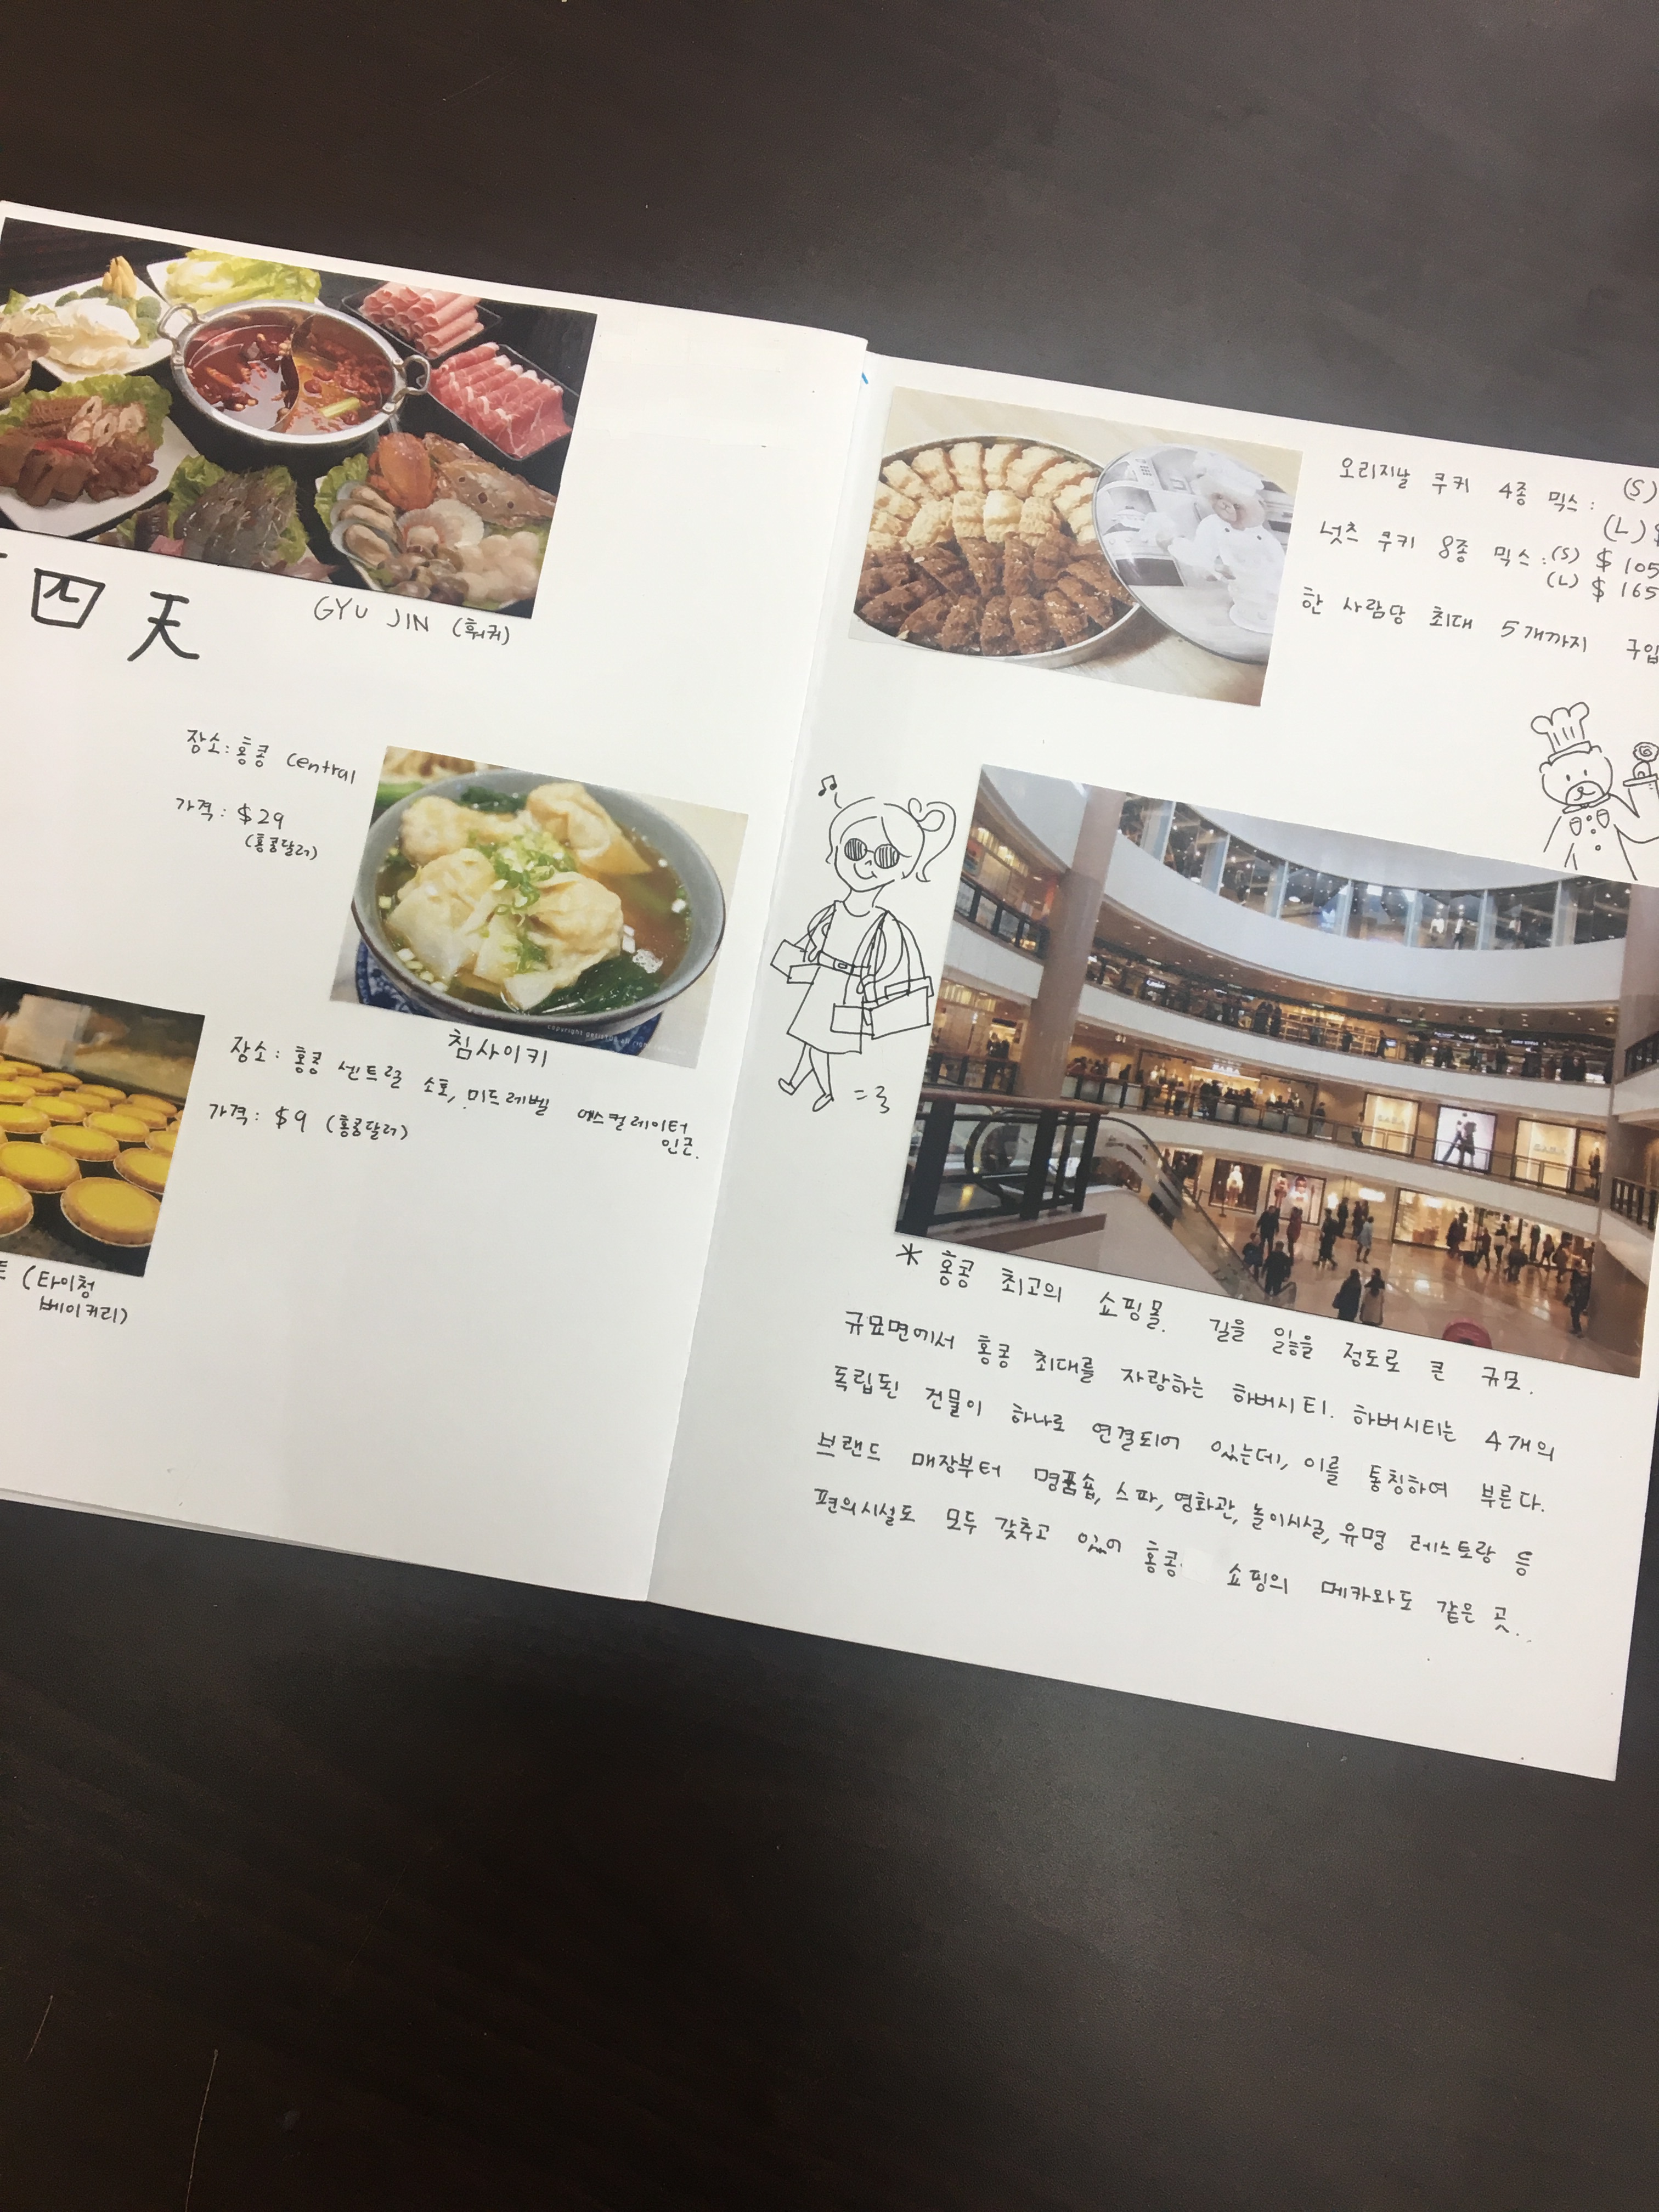 四天
GYU JIN (훠궈)
장소: 홍콩 Central
가격: $29
(홍콩달러)
침사이키
장소: 홍콩 센트럴 소호, 미드레벨 에스컬레이터
인근.
가격: $9 (홍콩달러)
(타이청
베이커리)
오리지날 쿠키 4종 믹스: (S)
(L) $
넛츠 쿠키 8종 믹스: (S) $105
(L) $165
한 사람당 최대 5개까지 구입
* 홍콩 최고의 쇼핑몰. 길을 잃을 정도로 큰 규모.
규묘면에서 홍콩 최대를 자랑하는 하버시티. 하버시티는 4개의
독립된 건물이 하나로 연결되어 있는데, 이를 통칭하여 부른다.
브랜드 매장부터 명품숍, 스파, 영화관, 놀이시설, 유명 레스토랑 등
편의시설도 모두 갖추고 있어 홍콩 쇼핑의 메카와도 같은 곳..